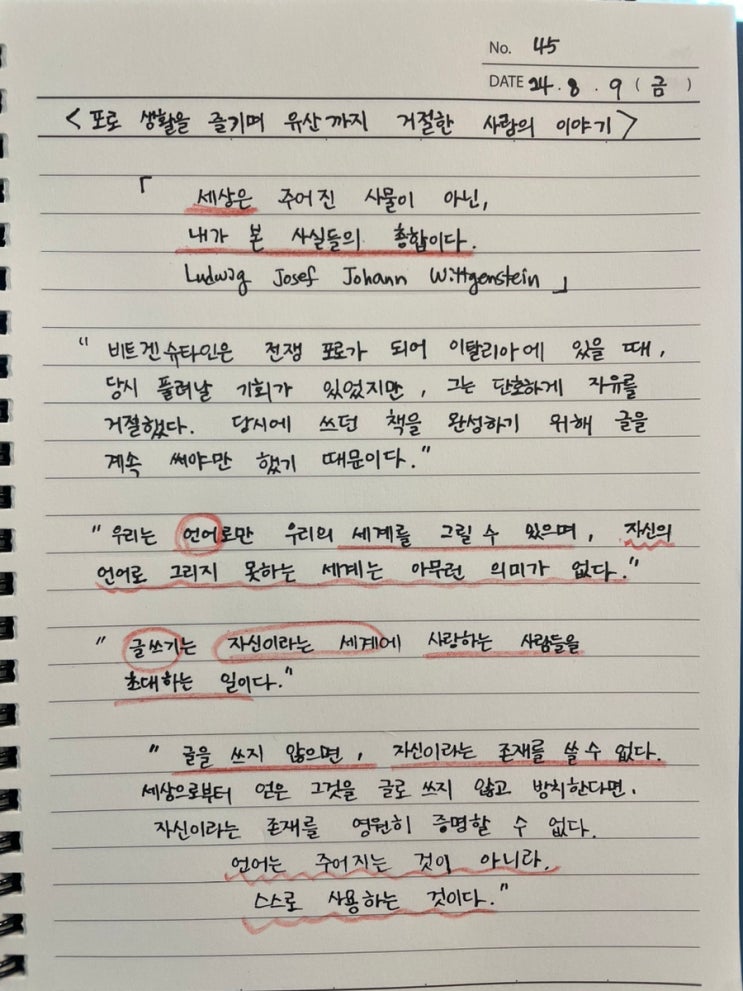 No. 45
DATE 24. 8. 9 (금)
<포로 생활을 즐기며 유산까지 거절한 사람의 이야기>
「 세상은 주어진 사물이 아닌,
내가 본 사실들의 총합이다.
Ludwig Josef Johann Wittgenstein 」
" 비트겐슈타인은 전쟁 포로가 되어 이탈리아에 있을 때,
당시 풀려날 기회가 있었지만, 그는 단호하게 자유를
거절했다. 당시에 쓰던 책을 완성하기 위해 글을
계속 써야만 했기 때문이다."
" 우리는 언어로만 우리의 세계를 그릴 수 있으며, 자신의
언어로 그리지 못하는 세계는 아무런 의미가 없다."
" 글쓰기는 자신이라는 세계에 사랑하는 사람들을
초대하는 일이다."
" 글을 쓰지 않으면, 자신이라는 존재를 쓸 수 없다.
세상으로부터 얻은 그것을 글로 쓰지 않고 방치한다면,
자신이라는 존재를 영원히 증명할 수 없다.
언어는 주어지는 것이 아니라,
스스로 사용하는 것이다."